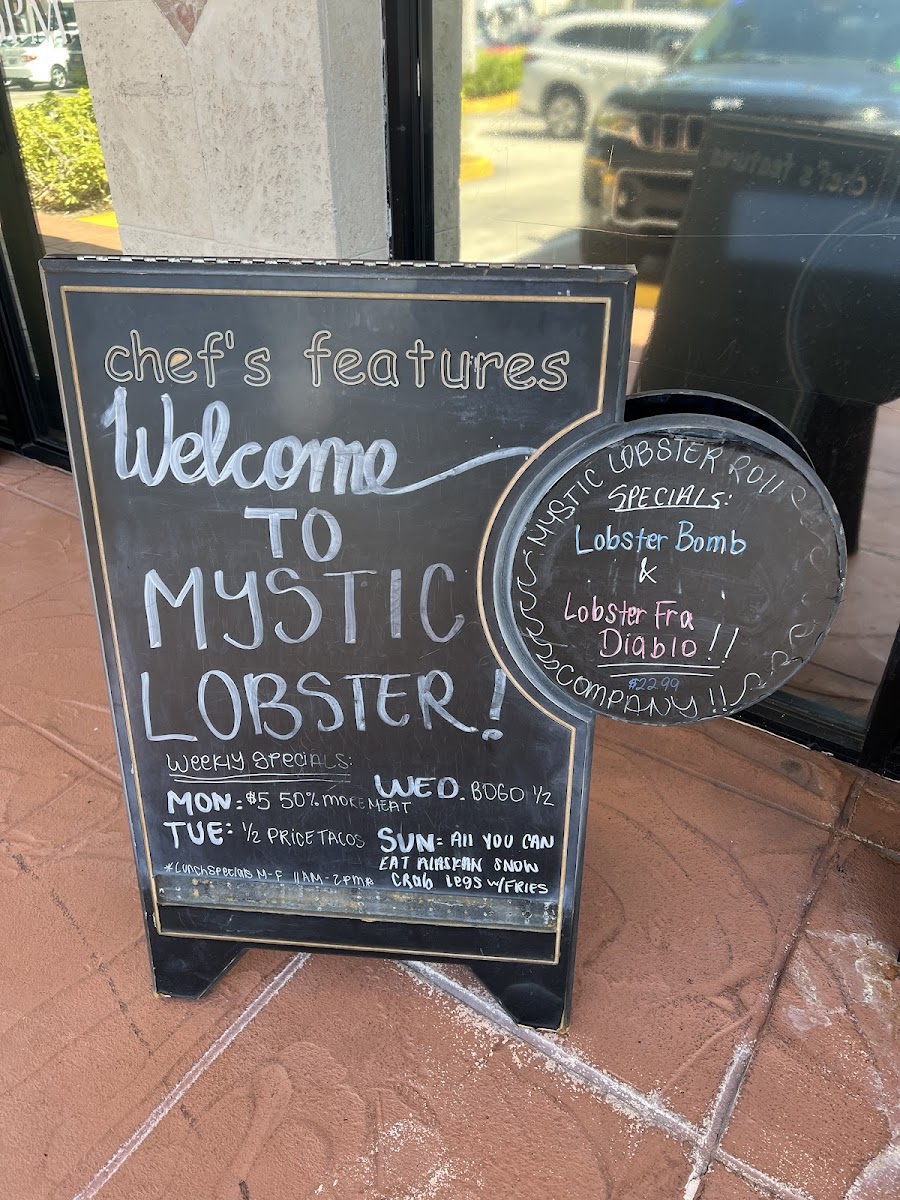 chef's features
Welcome
TO
MYSTIC
LOBSTER!
WEEKLY SPECIALS:
MON: $5 50% MORE MEAT
TUE: 1/2 PRICE TACOS
WED. BOGO 1/2
SUN: All YOU CAN
EAT AlASKAN SNOW
CRab legs w/FRIES
*Lunch specials M-F 11AM-2PM*
MYSTIC LOBSTER ROll
SPECIALS:
Lobster Bomb
&
Lobster Fra
Diablo!!
$22.99
COMPANY!!
chef's features